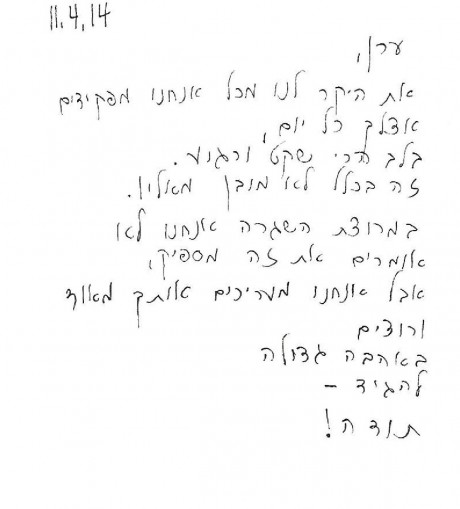 11.4.14
ערן,
את היקר לנו מכל אנחנו מפקידים
אצלך כל יום,
בלב הכי שקט ורגוע.
זה בכלל לא מובן מאליו.
במרוצת השגרה אנחנו לא
אומרים את זה מספיק,
אבל אנחנו מעריכים אותך מאוד
ורוצים
באהבה גדולה
להגיד –
תודה!